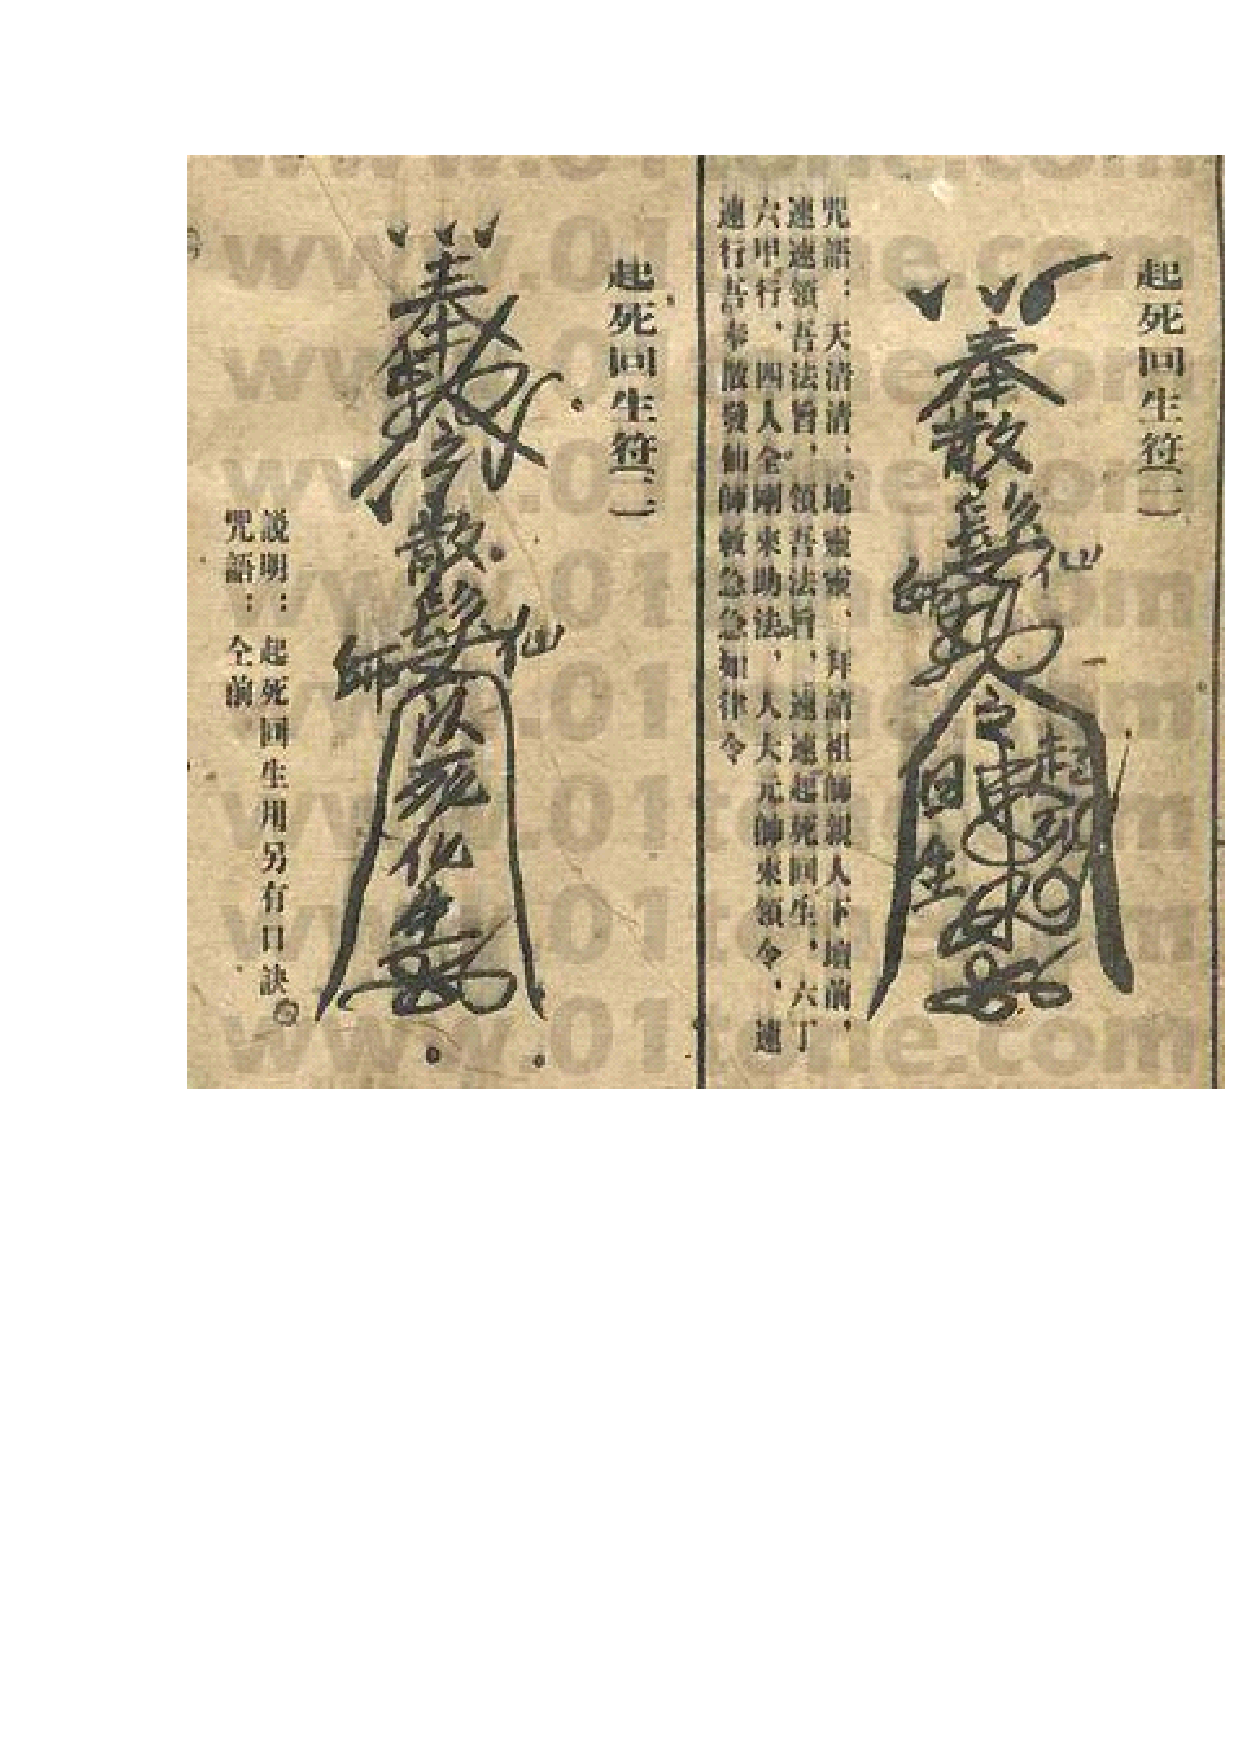 起死回生符(一)
奉
散
髮
仙
師
勅
令
起
死
回
生
咒語：天清清、地靈靈、拜請祖師親人下壇前，
速速領吾法旨，領吾法旨，速速起死回生，六丁
六甲行，四人全剛來助法，人大元帥來領令，速
速行吾奉散發仙師敕急急如律令
起死回生符(二)
奉
勅
令
散
髮
仙
師
死
化
生
説明：起死回生用另有口訣
咒語：仝前
www.01tone.com